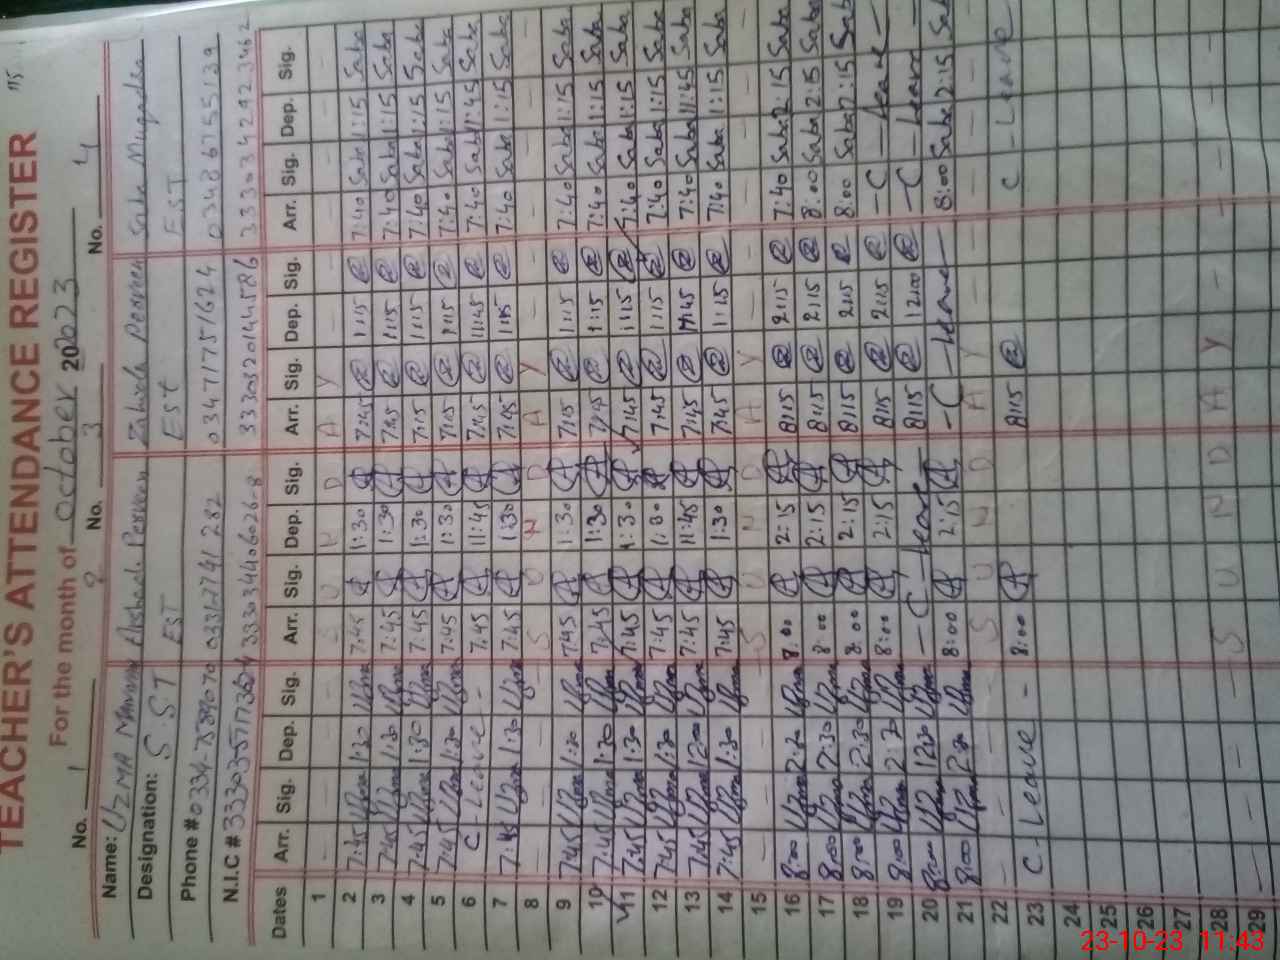 TEACHER'S ATTENDANCE REGISTER
For the month of October 202023
No. 1 No. 2 No. 3 No. 4
Name: UZMA Arshad Perveen Zahida Perveen Saba
Designation: S S T EST EST EST
Phone # 03471751624 03486755139
N.I.C #
Dates Arr. Sig. Dep. Sig. Arr. Sig. Dep. Sig. Arr. Sig. Dep. Sig. Arr. Sig. Dep. Sig.
1 S U N D A Y
2 7:45 Uzma 1:30 Uzma 7:45 1:30 7:45 1:15 7:40 Saba 1:15 Saba
3 7:45 Uzma 1:30 Uzma 7:45 1:30 7:45 1:15 7:40 Saba 1:15 Saba
4 7:45 Uzma 1:30 Uzma 7:45 1:30 7:45 1:15 7:40 Saba 1:15 Saba
5 7:45 Uzma 1:30 Uzma 7:45 1:30 7:45 1:15 7:40 Saba 1:15 Saba
6 C - Leave - 7:45 11:45 7:45 11:45 7:40 Saba 11:45 Saba
7 7:45 Uzma 1:30 Uzma 7:45 1:30 7:45 1:15 7:40 Saba 1:15 Saba
8 S U N D A Y
9 7:45 Uzma 1:30 Uzma 7:45 1:30 7:45 1:15 7:40 Saba 1:15 Saba
10 7:45 Uzma 1:30 Uzma 7:45 1:30 7:45 1:15 7:40 Saba 1:15 Saba
11 7:45 Uzma 1:30 Uzma 7:45 1:30 7:45 1:15 7:40 Saba 1:15 Saba
12 7:45 Uzma 1:30 Uzma 7:45 1:30 7:45 1:15 7:40 Saba 1:15 Saba
13 7:45 Uzma 12:00 Uzma 7:45 11:45 7:45 11:45 7:40 Saba 11:45 Saba
14 7:45 Uzma 1:30 Uzma 7:45 1:30 7:45 1:15 7:40 Saba 1:15 Saba
15 S U N D A Y
16 8:00 Uzma 2:30 Uzma 8:00 2:15 8:15 2:15 7:40 Saba 2:15 Saba
17 8:00 Uzma 2:30 Uzma 8:00 2:15 8:15 2:15 8:00 Saba 2:15 Saba
18 8:00 Uzma 2:30 Uzma 8:00 2:15 8:15 2:15 8:00 Saba 2:15 Saba
19 8:00 Uzma 2:30 Uzma 8:00 2:15 8:15 2:15 - C - Leave -
20 8:00 Uzma 12:30 Uzma - C - Leave - 8:15 12:00 - C - Leave -
21 8:00 Uzma 2:30 Uzma 8:00 2:15 - C - Leave - 8:00 Saba 2:15 Saba
22 S U N D A Y
23 C - Leave - 8:00 8:15 C - Leave
24
25
26
27
28 S U N D A Y
29
23-10-23 11:43